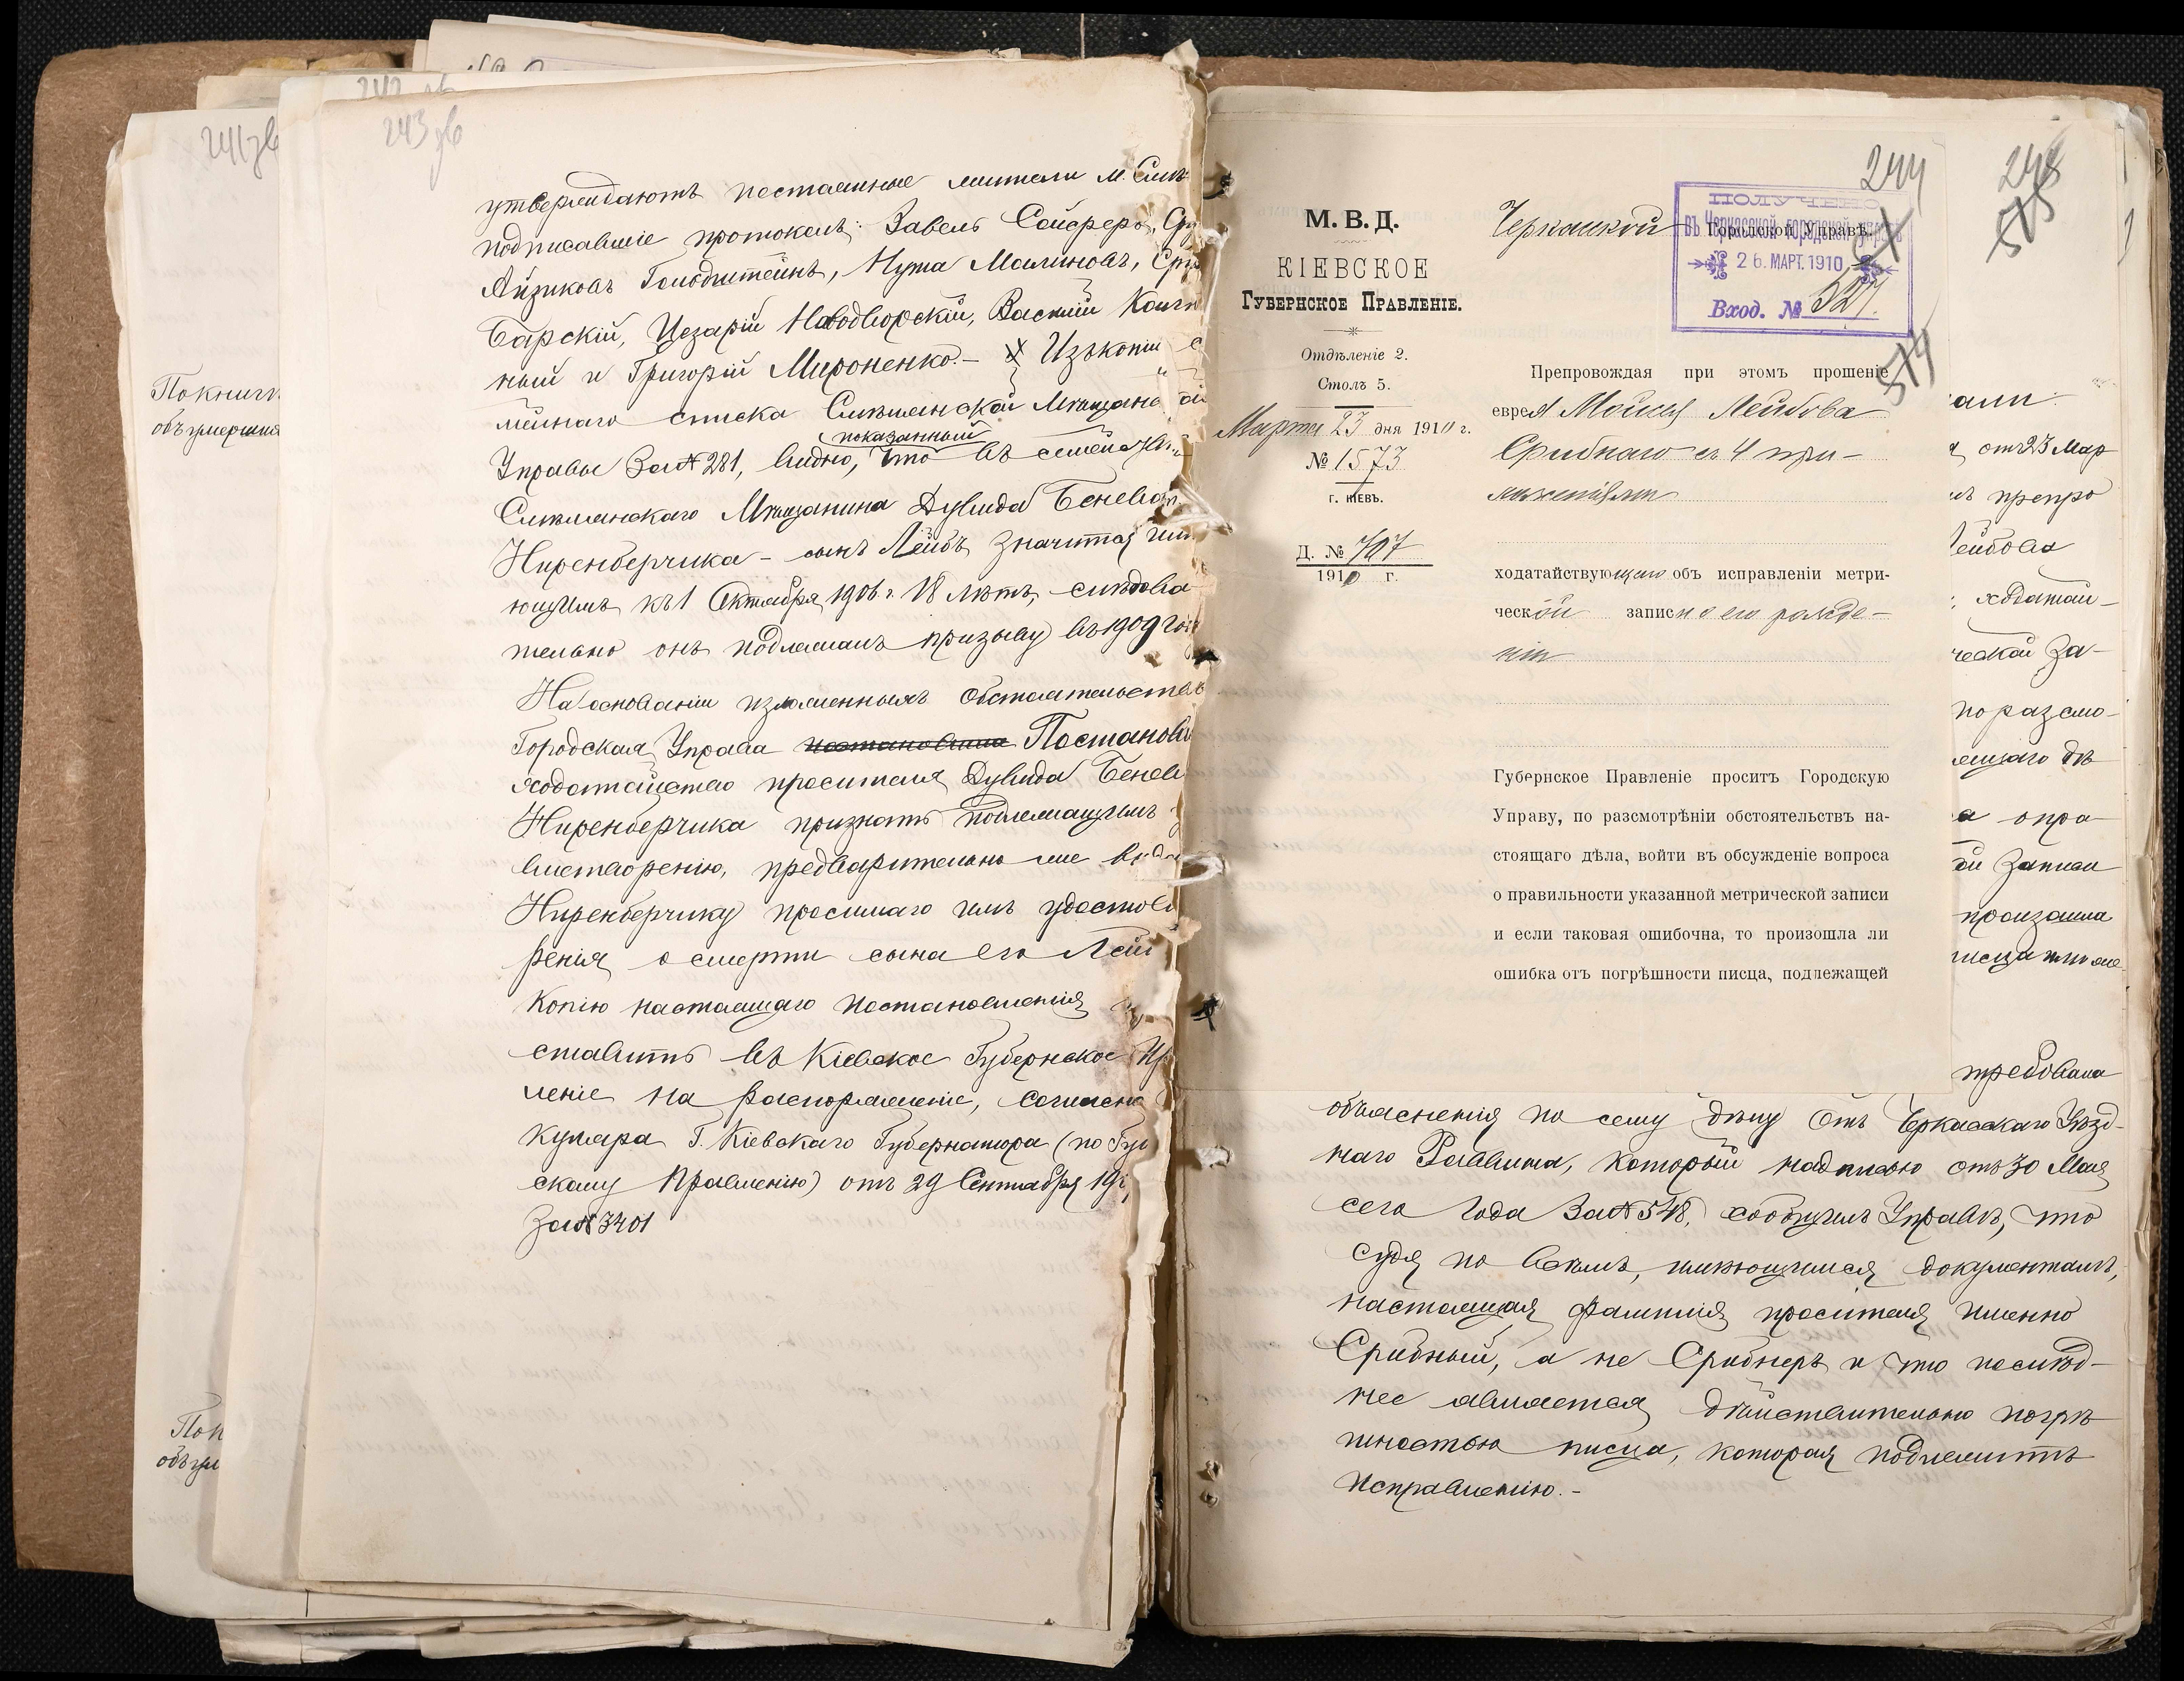 241 зв
242 зв
243 зв
По книгѣ
объ умерших
По к
объ ум
утверждаютъ постоянные жители м. Смѣ
подписавшіе протоколъ: Завель Сойферъ, Ср
Айзиковъ Гольдштейнъ, Нута Малиновъ, Сру
Барскій, Цезарій Наводворскій, Василій
ный и Григорій Мироненко. – Изъ копіи с
мейнаго списка Смѣлянской Мѣщанс
показанный
Управы за № 281, видно, что въ семействѣ
Смѣлянскаго Мѣщанина Дувида Беневa
Ниренберчика – сынъ Лейбъ значится им
ющимъ къ 1 Октября 1906 г. 18 лѣтъ, слѣдова
тельно онъ подлежалъ призыву въ 1909 год
На основаніи изложенныхъ обстоятельствъ
Городская Управа постановила Постанови
ходатайство просителя Дувида Беневи
Ниренберчика признать подлежащимъ у
влетворенію, предварительно же выда
Ниренберчику просимаго имъ удостовѣ
ренія о смерти сына его Лей
копію настоящаго постановленія
ставить въ Кіевское Губернское Пр
леніе на распоряженіе, согласно
куляра Г. Кіевскаго Губернатора (по Губ
скому Правленію) отъ 29 Сентября 19
за № 3401
244
574
М. В. Д.
КІЕВСКОЕ
Губернское Правленіе.
Отдѣленіе 2.
Столъ 5.
Марта 23 дня 1910 г.
№ 1573
г. КІЕВЪ.
Д. № 707
1910 г.
Черкасской Городской Управѣ.
ПОЛУЧЕНО
въ Черкасской городской управѣ
26. МАРТ. 1910
Вход. № 327.
Препровождая при этомъ прошеніе
еврея Мойсея Лейбова
Срибнаго съ 4 при-
ложеніями
ходатайствующаго объ исправленіи метри-
ческой записи о его рожде-
ніи
Губернское Правленіе проситъ Городскую
Управу, по разсмотрѣніи обстоятельствъ на-
стоящаго дѣла, войти въ обсужденіе вопроса
о правильности указанной метрической записи
и если таковая ошибочна, то произошла ли
ошибка отъ погрѣшности писца, подлежащей
575
али
отъ 23 Мар
препро
Лейбова
ходатай-
ческой за-
по разсмо-
ящаго дѣ
а о пра
ой записи
произошла
писца или же
требовала
объясненія по сему дѣлу отъ Черкасскаго Уѣзд-
наго Раввина, который надписью отъ 30 Мая
сего года за № 548, сообщилъ Управѣ, что
судя по всѣмъ, имѣющимся документамъ,
настоящая фамилія просителя именно
Срибный, а не Срибнеръ и что послѣд-
нее является дѣйствительно погрѣ
шностью писца, которая подлежитъ
исправленію. –